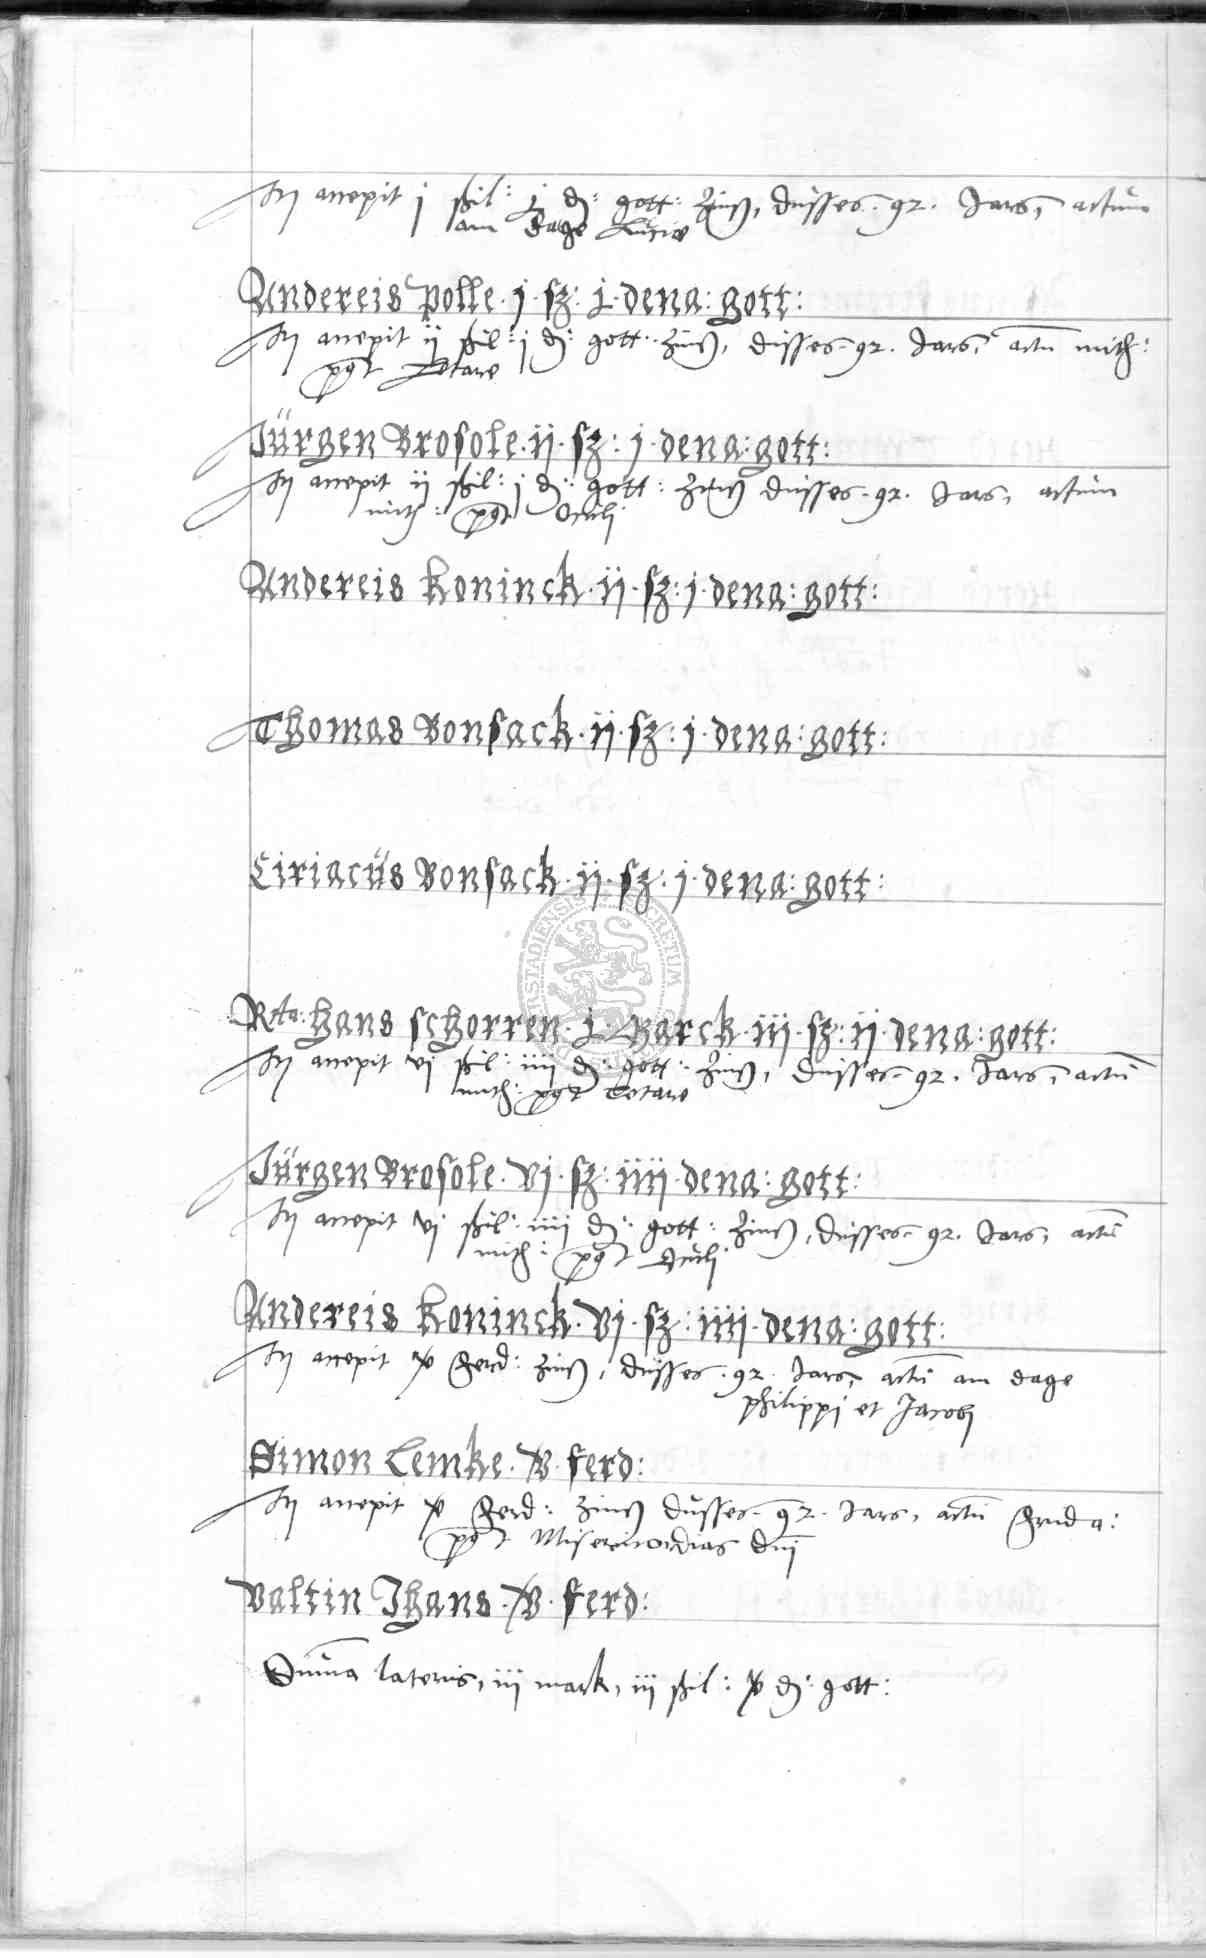 accepit j schil: j d: gott: Zinß, dusses qr. Jars, actum
am dage Lucie
Andereis Polle · j · sz: j · dena: gott:
accepit ij schil: j d: gott: Zinß, dusses qr. Jars, actu mith:
pqt Letare
Jürgen Brosole · ij · sz: j · dena: gott:
accepit ij schil: j d: gott: Zinß dusses qr. Jars, actum
mith: pqt Oculi
Andereis Koninck · ij · sz: j · dena: gott:
Thomas Bonsack · ij · sz: j · dena: gott:
Ciriacüs Bonsack · ij · sz · j · dena: gott:
Rta: Hans Schorren · j · Marck · iij · sz: ij · dena: gott:
accepit vj schil: iiij d: gott: Zinß, dusses qr. Jars, actu
mith: pqt Letare
Jürgen Brosole · vj · sz: iiij · dena: gott:
accepit vj schil: iiij d: gott: Zinß, dusses qr. Jars, actu
mith: pqt Oculi
Andereis Koninck · vj · sz: iiij · dena: gott:
accepit ferd: Zinß, dusses qr. Jars, actu am dage
philippi et Jacobi
Simon Lemke · ferd:
accepit ferd: Zinß dusses qr. Jars, actu
pqt Misericordias dni
Valtin Jhans · ferd:
Suma lateris, iij mark, iij schil: d: gott: